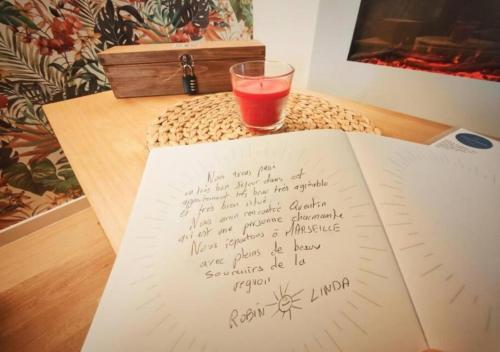 Nous avons passé
un très bon séjour dans cet
appartement très beau très agréable
et très bien situé.
Nous avons rencontré Quentin
qui est une personne charmante
Nous repartons à MARSEILLE
avec pleins de beaux
souvenirs de la
région
ROBIN LINDA